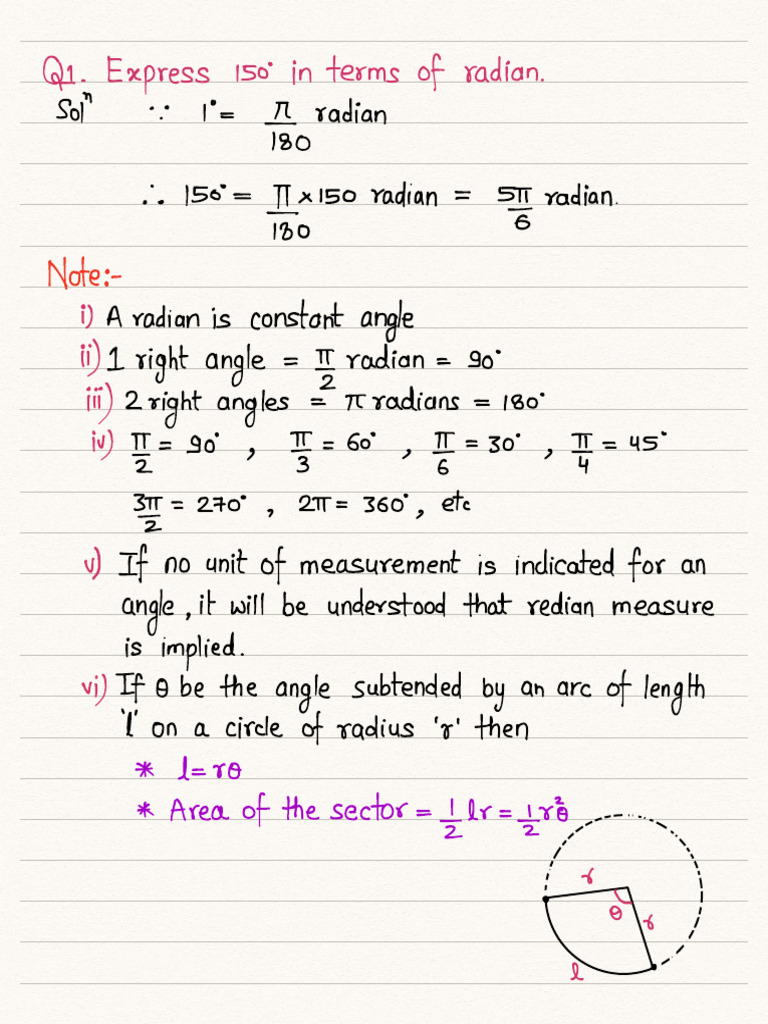 Q1. Express 150° in terms of radian.
Solⁿ ∵ 1° = π/180 radian
∴ 150° = π/180 × 150 radian = 5π/6 radian.
Note:-
i) A radian is constant angle
ii) 1 right angle = π/2 radian = 90°
iii) 2 right angles = π radians = 180°
iv) π/2 = 90° , π/3 = 60° , π/6 = 30° , π/4 = 45°
3π/2 = 270° , 2π = 360° , etc
v) If no unit of measurement is indicated for an
angle, it will be understood that redian measure
is implied.
vi) If θ be the angle subtended by an arc of length
'l' on a circle of radius 'r' then
* l = rθ
* Area of the sector = 1/2 lr = 1/2 r²θ
r
θ
r
l